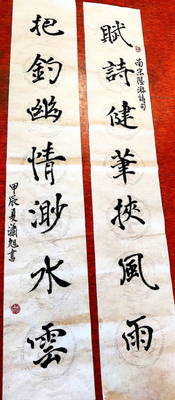 賦詩健筆挾風雨
南宋陸游詩句
把釣幽情渺水雲
甲辰夏瀟旭書